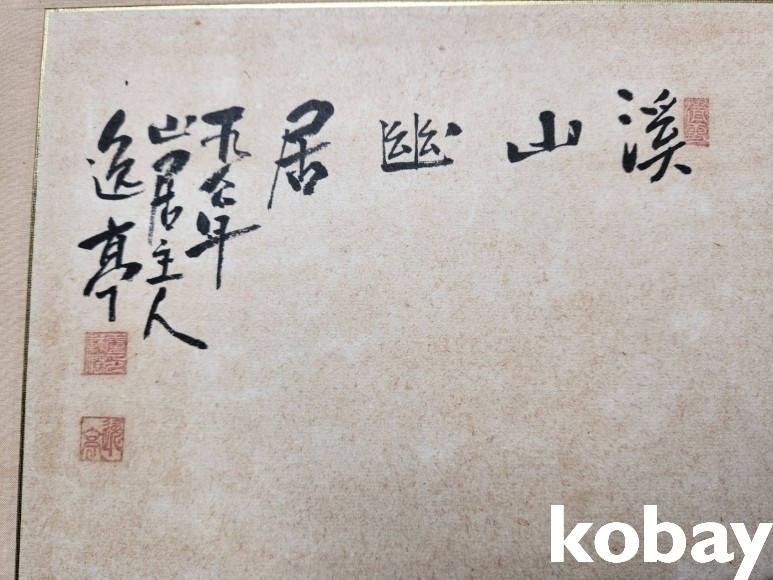 溪山幽居
山居主人
逸亭
kobay